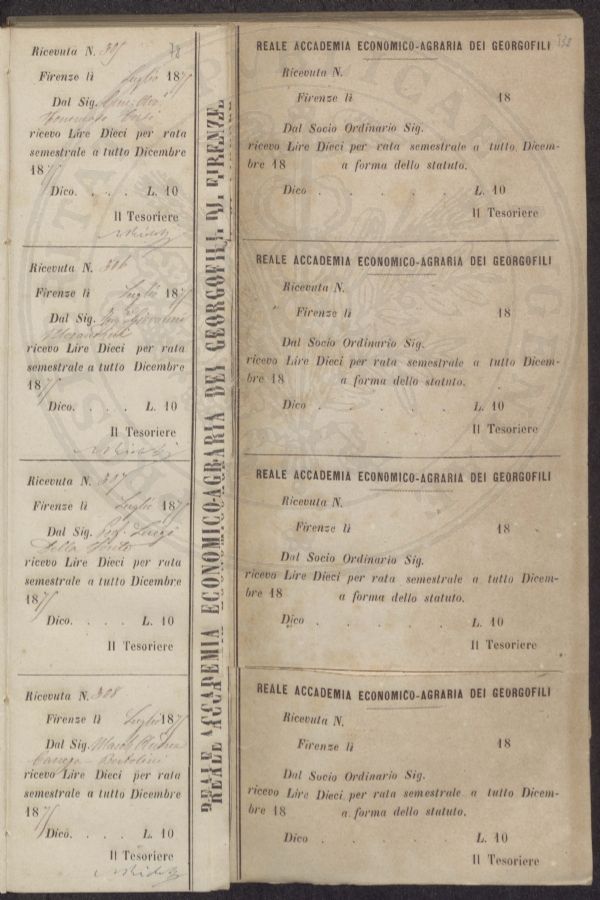 78
Ricevuta N. 305
Firenze lì Luglio 187
Dal Sig.
ricevo Lire Dieci per rata
semestrale a tutto Dicembre
187
Dico. . . . L. 10
Il Tesoriere
Ricevuta N. 306
Firenze lì Luglio 187
Dal Sig. Giovanni
ricevo Lire Dieci per rata
semestrale a tutto Dicembre
187
Dico. . . . L. 10
Il Tesoriere
Ricevuta N. 307
Firenze lì Luglio 187
Dal Sig. Luigi
Della
ricevo Lire Dieci per rata
semestrale a tutto Dicembre
187
Dico. . . . L. 10
Il Tesoriere
Ricevuta N. 308
Firenze lì Luglio 187
Dal Sig. March
Bartolini
ricevo Lire Dieci per rata
semestrale a tutto Dicembre
187
Dico. . . . L. 10
Il Tesoriere
REALE ACCADEMIA ECONOMICO-AGRARIA DEI GEORGOFILI DI FIRENZE
REALE ACCADEMIA ECONOMICO-AGRARIA DEI GEORGOFILI
Ricevuta N.
Firenze lì 18
Dal Socio Ordinario Sig.
ricevo Lire Dieci per rata semestrale a tutto Dicem-
bre 18 a forma dello statuto.
Dico . . . . L. 10
Il Tesoriere
REALE ACCADEMIA ECONOMICO-AGRARIA DEI GEORGOFILI
Ricevuta N.
Firenze lì 18
Dal Socio Ordinario Sig.
ricevo Lire Dieci per rata semestrale a tutto Dicem-
bre 18 a forma dello statuto.
Dico . . . . L. 10
Il Tesoriere
REALE ACCADEMIA ECONOMICO-AGRARIA DEI GEORGOFILI
Ricevuta N.
Firenze lì 18
Dal Socio Ordinario Sig.
ricevo Lire Dieci per rata semestrale a tutto Dicem-
bre 18 a forma dello statuto.
Dico . . . . L. 10
Il Tesoriere
REALE ACCADEMIA ECONOMICO-AGRARIA DEI GEORGOFILI
Ricevuta N.
Firenze lì 18
Dal Socio Ordinario Sig.
ricevo Lire Dieci per rata semestrale a tutto Dicem-
bre 18 a forma dello statuto.
Dico . . . . L. 10
Il Tesoriere